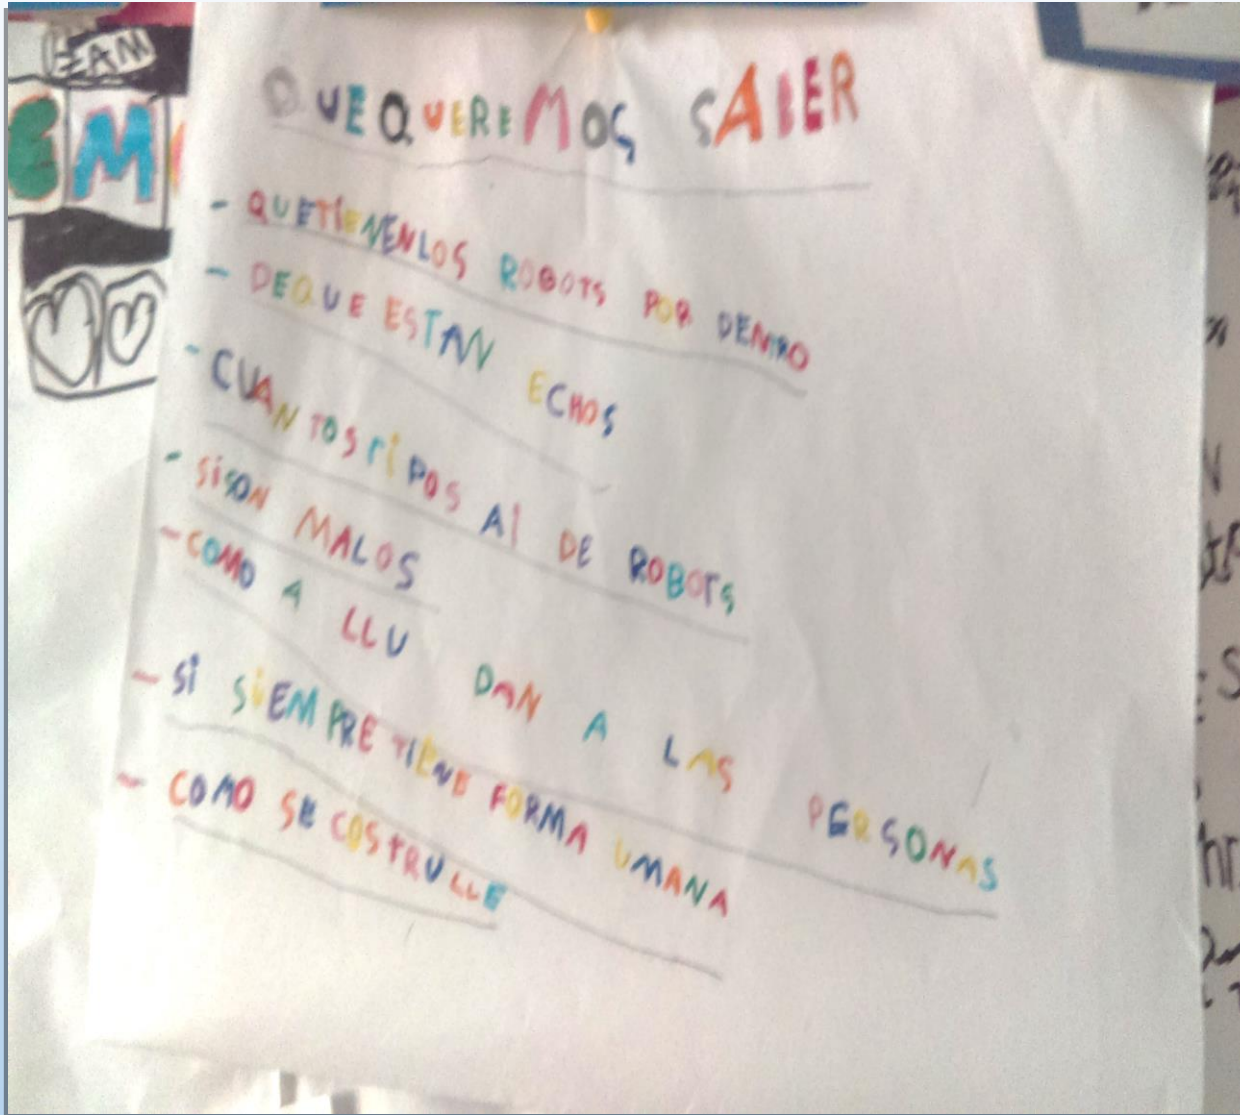 EAM
EM
QUEQUEREMOS SABER
- QUETIENENLOS ROBOTS POR DENTRO
- DEQUE ESTAN ECHOS
- CUANTOSTIPOS AI DE ROBOTS
- SISON MALOS
- COMO A LLU DAN A LAS PERSONAS
- SI SIEMPRE TIENE FORMA UMANA
- COMO SE COSTRULLE